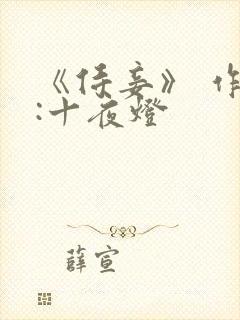 《侯妾》 作
:十夜燈
薛宣